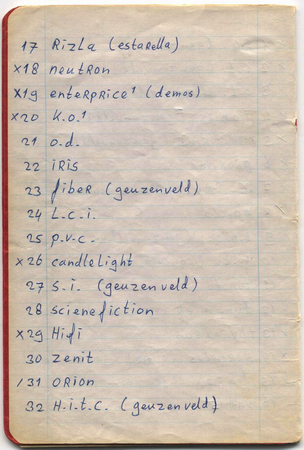 17 Rizla (estarella)
x18 neutron
x19 enterprice¹ (demos)
x20 K.o.¹
21 o.d.
22 iRis
23 fiber (geuzenveld)
24 L.c.i.
25 p.v.c.
x26 candlelight
27 S.i. (geuzenveld)
28 scienefiction
x29 Hifi
30 zenit
/31 ORion
32 H.i.t.c. (geuzenveld)